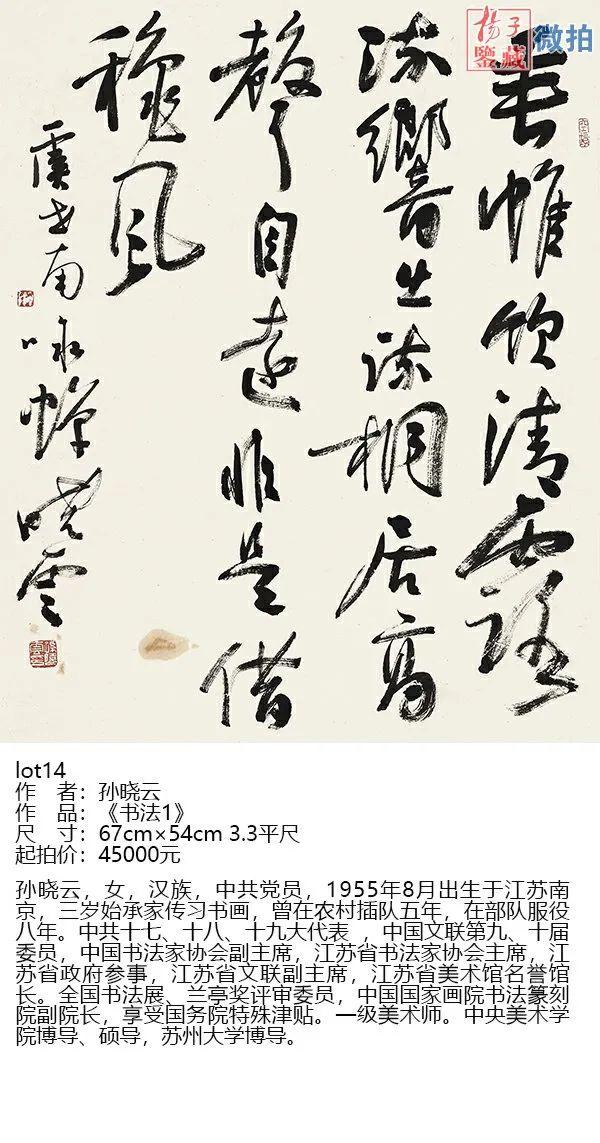 揚子
鑒藏
微拍
垂帷飲清露
流響出疏桐居高
聲自遠非是借
穐風
虞世南咏蟬 曉雲
lot14
作 者：孙晓云
作 品：《书法1》
尺 寸：67cm×54cm 3.3平尺
起拍价：45000元
孙晓云，女，汉族，中共党员，1955年8月出生于江苏南
京，三岁始承家传习书画，曾在农村插队五年，在部队服役
八年。中共十七、十八、十九大代表 ，中国文联第九、十届
委员，中国书法家协会副主席，江苏省书法家协会主席，江
苏省政府参事，江苏省文联副主席，江苏省美术馆名誉馆
长。全国书法展、兰亭奖评审委员，中国国家画院书法篆刻
院副院长，享受国务院特殊津贴。一级美术师。中央美术学
院博导、硕导，苏州大学博导。